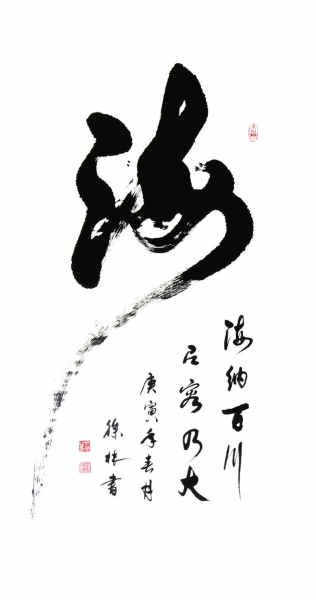 海
海纳百川
有容乃大
庚寅年春月
徐林書